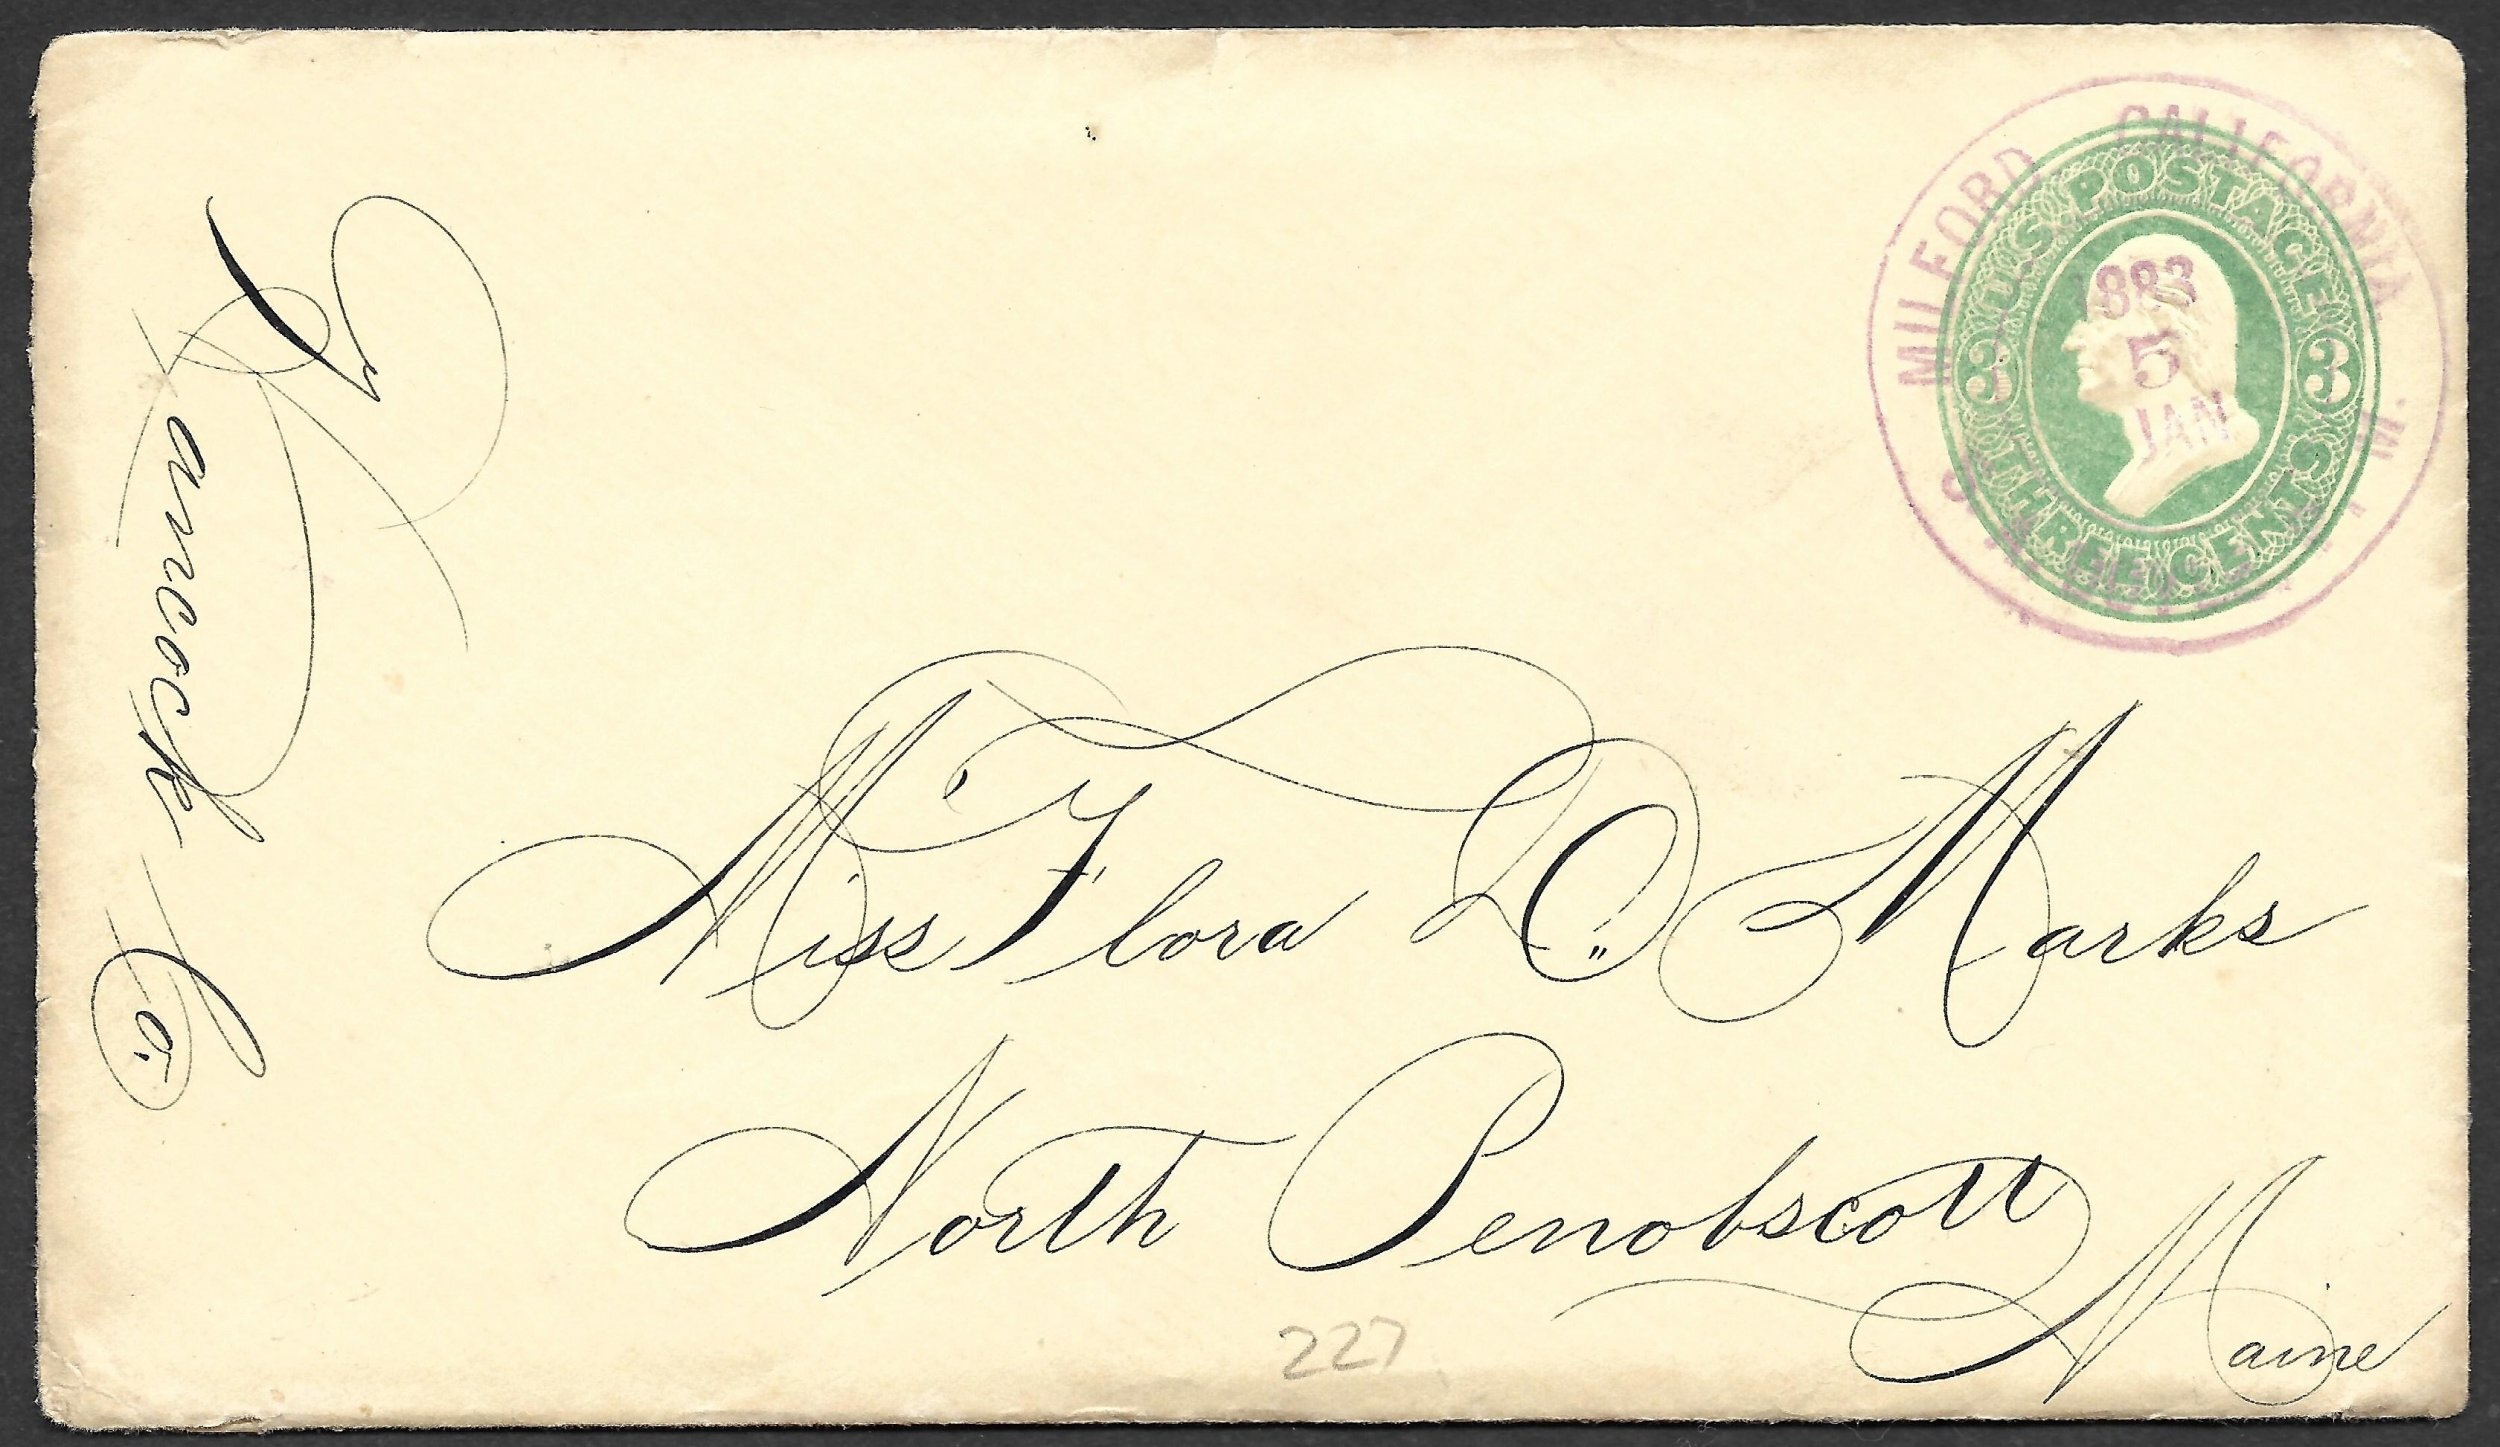 MILFORD CALIFORNIA.
1883
5
JAN
U.S. POSTAGE
3 3
THREE CENTS
Hancock Co.
Miss Flora D. Marks
North Penobscott
Maine
227